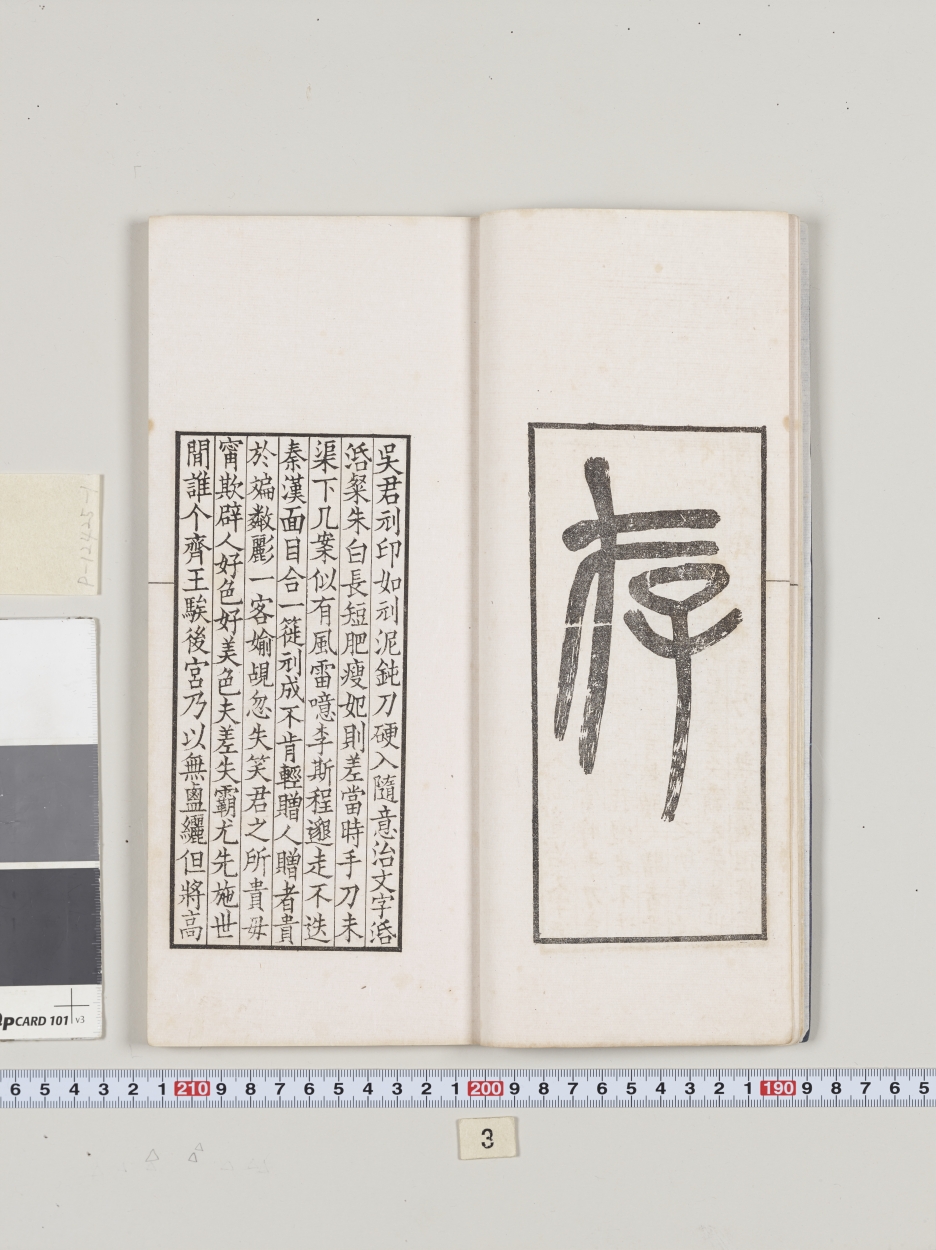 存
吴君刓印如刓泥鈍刀硬入隨意治文字活
活粲朱白長短肥瘦妃則差當時手刀未
渠下几案似有風雷噫李斯程邈走不迭
秦漢面目合一蓰刓成不肯輕贈人贈者貴
於斒斒麗彰一客婾覘忽失笑君之所貴毋
甯欺辟人好色好美色夫差失霸尤先施世
間誰个齊王騃後宮乃以無鹽纚但將高
P-12425-1
QPCARD 101 v3
6 5 4 3 2 1 210 9 8 7 6 5 4 3 2 1 200 9 8 7 6 5 4 3 2 1 190 9 8 7 6 5
3